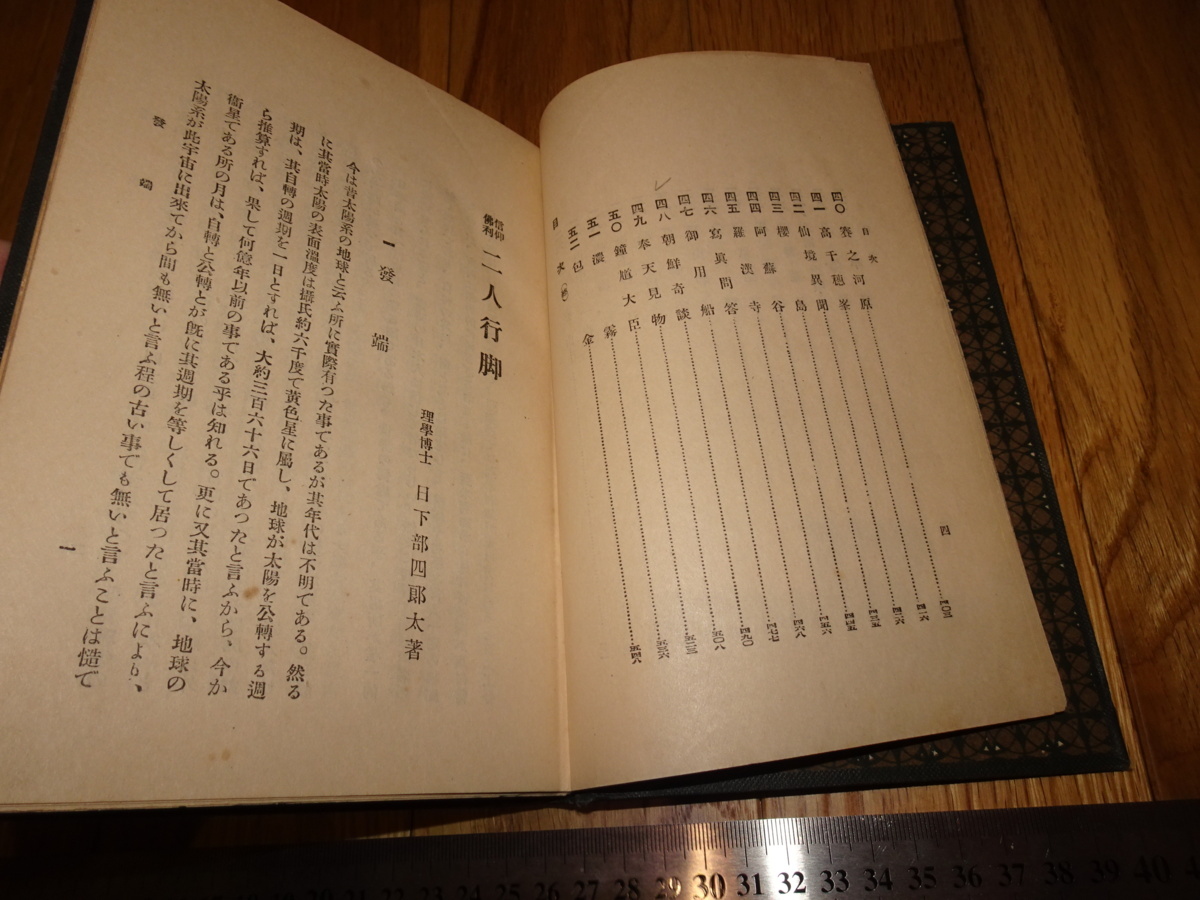 目次
四
四〇 賽之河原 四〇三
四一 高千穗峯 四一六
四二 仙境異聞 四二六
四三 櫻島 四三五
四四 阿蘇谷 四四五
四五 羅漢寺 四五六
四六 寫眞問答 四六八
四七 御用船 四七七
四八 朝鮮奇談 四九〇
四九 奉天見物 五〇八
五〇 鐘馗大臣 五二三
五一 濃霧 五三六
五二 包金 五四八
目次 終
信仰佛利 二人行脚
理學博士 日下部四郎太著
一 發端
今は昔太陽系の地球と云ふ所に實際有つた事であるが其年代は不明である。然る
に其當時太陽の表面溫度は攝氏約六千度で黃色星に屬し、地球が太陽を公轉する週
期は、其自轉の週期を一日とすれば、大約三百六十六日であつたと言ふから、今か
ら推算すれば、果して何億年以前の事である乎は知れる。更に又其當時に、地球の
衞星である所の月は、自轉と公轉とが既に其週期を等しくして居つたと言ふにより、
太陽系が此宇宙に出來てから間も無いと言ふ程の古い事でも無いと言ふことは慥で
發端
一
28 29 30 31 32 33 34 35 36 37 38 39 40